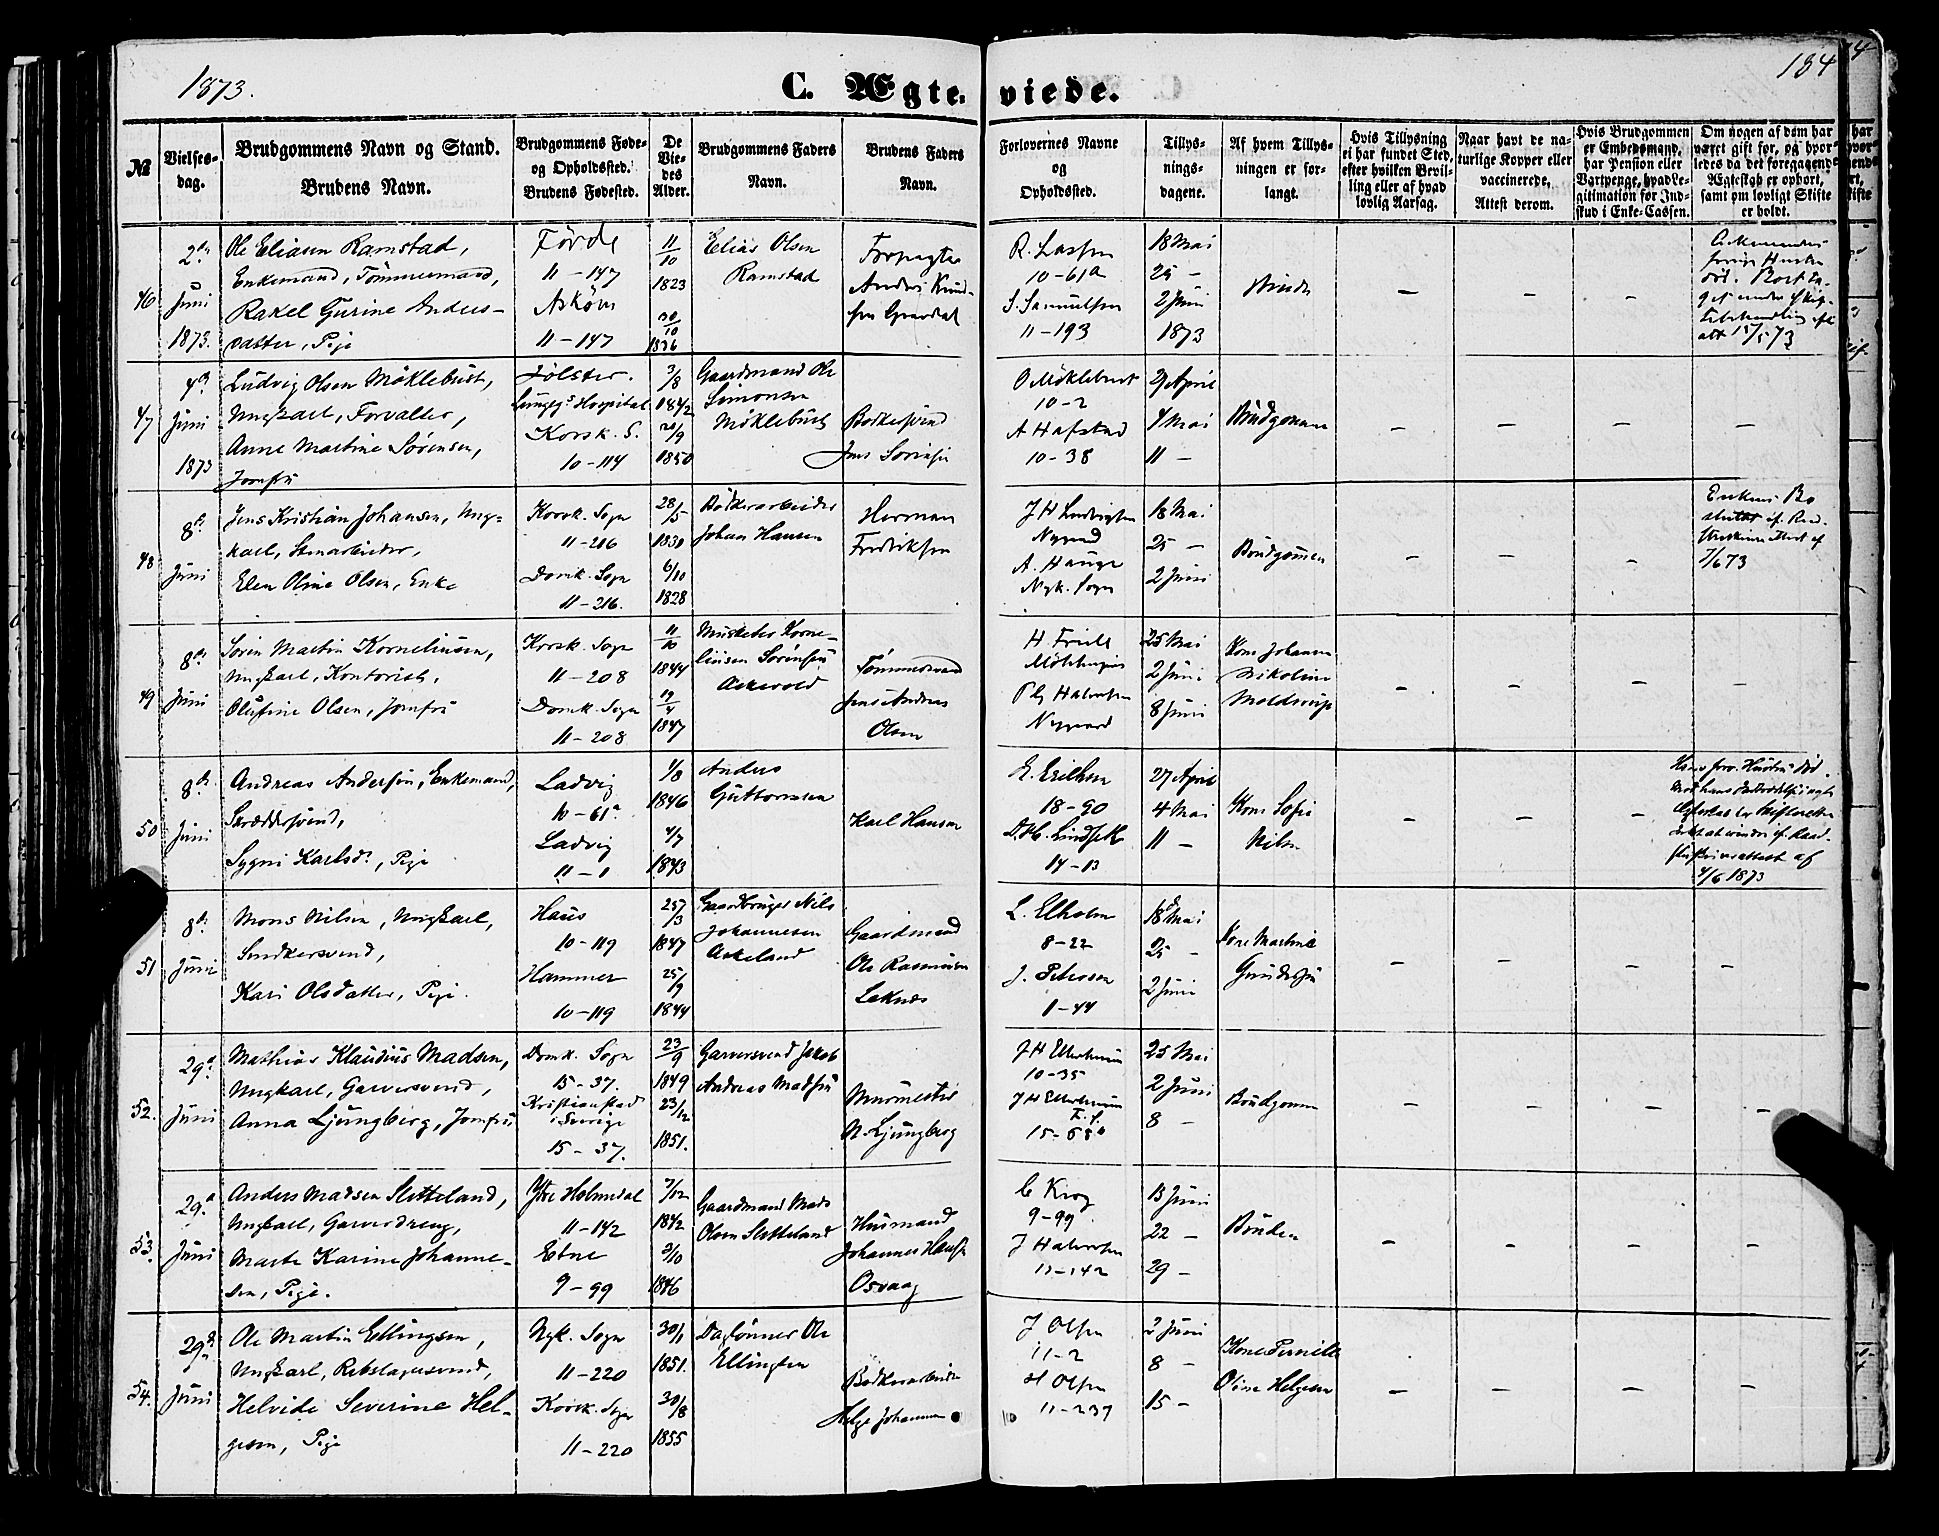 1873.
C. Ægte-
viede.
184
№
Vielses-
dag.
Brudgommens Navn og Stand.
Brudens Navn.
Brudgommens Føde-
og Opholdssted.
Brudens Fødested.
De
Vie-
des
Alder.
Brudgommens Faders
Navn.
Brudens Faders
Navn.
Forlovernes Navne
og
Opholdssted.
Tillys-
nings-
dagene.
Af hvem Tillys-
ningen er for-
langt.
Hvis Tillysning
ei har fundet Sted,
efter hvilken Bevil-
ling eller af hvad
lovlig Aarsag.
Naar havt de na-
turlige Kopper eller
vaccinerede,
Attest derom.
Hvis Brudgommen
er Embedsmand,
har Pension eller
Vartpenge, hvad Le-
gitimation for Ind-
skud i Enke-Cassen.
Om nogen af dem har
været gift før, og hvor-
ledes da det foregaaende
Ægteskab er ophørt,
samt om lovligt Skifte
er holdt.
46
2den
Juni
1873.
Ole Eliasen Ramstad,
Enkemand, Tømmermand,
Rakel Gurine Anders-
datter, Pige
Førde
11-147
Askøen
11-147
11/10
1823
30/10
1836
Elias Olsen
Ramstad
Anders Knud-
R. Lassen
10-61a
S. Samuelsen
11-193
18 Mai
25 -
2 Juni
1873
47
4de
Juni
1873
Ludvig Olsen Møklebust,
Ungkarl, Forvalter,
Anne Martine Sørensen,
Jomfru
Jølster.
Lungegs Hospital
Korsk. S.
10-114
3/8
1842
20/9
1850
Gaardmand Ole
Simonsen
Møklebust
Bødkersvend
Jens Sørensen
O Møklebust
10-2
A Hafstad
10-38
27 April
4 Mai
11 -
Brudgommen
48
8de
Juni
Jens Kristian Johansen, Ung-
karl, Stenarbeider,
Elen Oline Olsen, Enke
Korsk. Sogn
11-216
Domk. Sogn
11-216.
28/5
1830
6/10
1828
Bødkerarbeider
Johan Hansen
Herman
Fredriksen
J H Ludvigsen
Nygaard
A. Hauge
Nyk. Sogn
18 Mai
25 -
2 Juni
Brudgommen
7/6 73
49
8de
Juni
Søren Martin Korneliusen,
Ungkarl, Kontorist,
Olufine Olsen, Jomfru
Korsk. Sogn
11-208
Domk. Sogn
11-208
11/10
1844
19/4
1847
Musketer Korne-
liusen Sørensen
Askevold
Tømmermand
Jens Andreas
Olsen
H. Friele
Nygaard
25 Mai
2 Juni
8 Juni
Kone Johanne
Nikoline
Moldrup
50
8de
Juni
Andreas Andersen, Enkemand,
Skræddersvend,
Sygni Karlsdr, Pige
Ladvig
10-61a
Ladvig
11-1
1/8
1846
4/7
1843
Anders
Guttormsen
Karl Hansen
E. Eriksen
18-90
14-13
27 April
4 Mai
11 -
Kone Sofie
Nilsen
4/6 1873
51
8de
Juni
Mons Nilsen, Ungkarl,
Snedkersvend,
Kari Olsdatter, Pige.
Haus
10-119
Hammer
10-119
25/3
1847
25/9
1844
Gaardbruger Nils
Johannesen
Askeland
Gaardmand
Ole Rasmusen
Leknes
L. Elholm
8-22
J. Petersen
1-44
18 Mai
25 -
2 Juni
Kone Martine
Gundersen
52.
29de
Juni
Mathias Klaudius Madsen,
Ungkarl, Garversvend,
Anna Ljungberg, Jomfru
Domk. Sogn
15-37.
Kristianstad
i Sverige
15-37.
23/9
1849
23/12
1851.
Garversvend Jakob
Andreas Madsen
Murmester
N. Ljungberg
10-35
25 Mai
2 Juni
8 -
Brudgommen
53.
29de
Juni
Anders Madsen Sletteland,
Ungkarl, Garverdreng,
Marte Karine Johanne-
sen, Pige.
Ytre Holmedal
11-142
Etne
9-99
7/12
1842
9/10
1846
Gaardmand Mads
Olsen Sletteland
Husmand
Johannes Hansen
Osvaag
C Krog
9-99.
J Halvorsen
11-142
15 Juni
22 -
29 -
Bruden
54.
29de
Juni
Ole Martin Ellingsen,
Ungkarl, Rebslagersvend,
Helvide Severine Hel-
gesen, Pige
Nyk. Sogn
11-220
Korsk. Sogn
11-220
30/1
1851.
30/8
1855
Daglønner Ole
Ellingsen
Bødkerarbeider
Helge Johannesen
J Olsen
11-2
H Olsen
11-237
2 Juni
8 -
15 -
Kone Pernille
Oline Helgesen